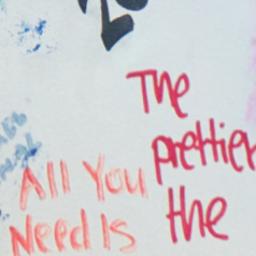 The
prettier
the
All You
Need Is